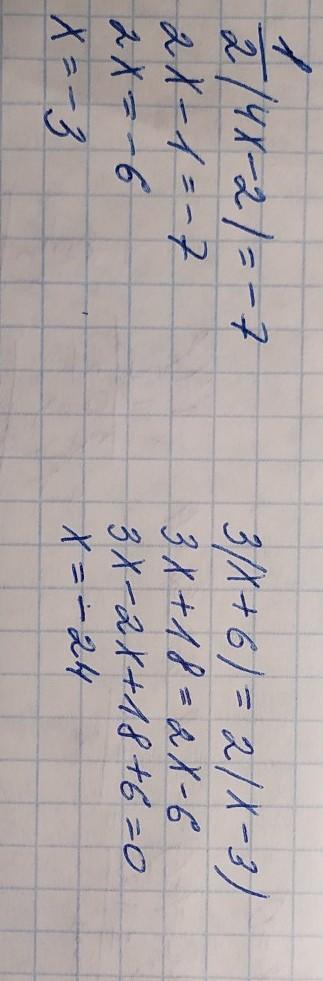 1/2 (4x-2) = -7
2x-1 = -7
2x = -6
x = -3
3(x+6) = 2(x-3)
3x+18 = 2x-6
3x-2x+18+6=0
x = -24